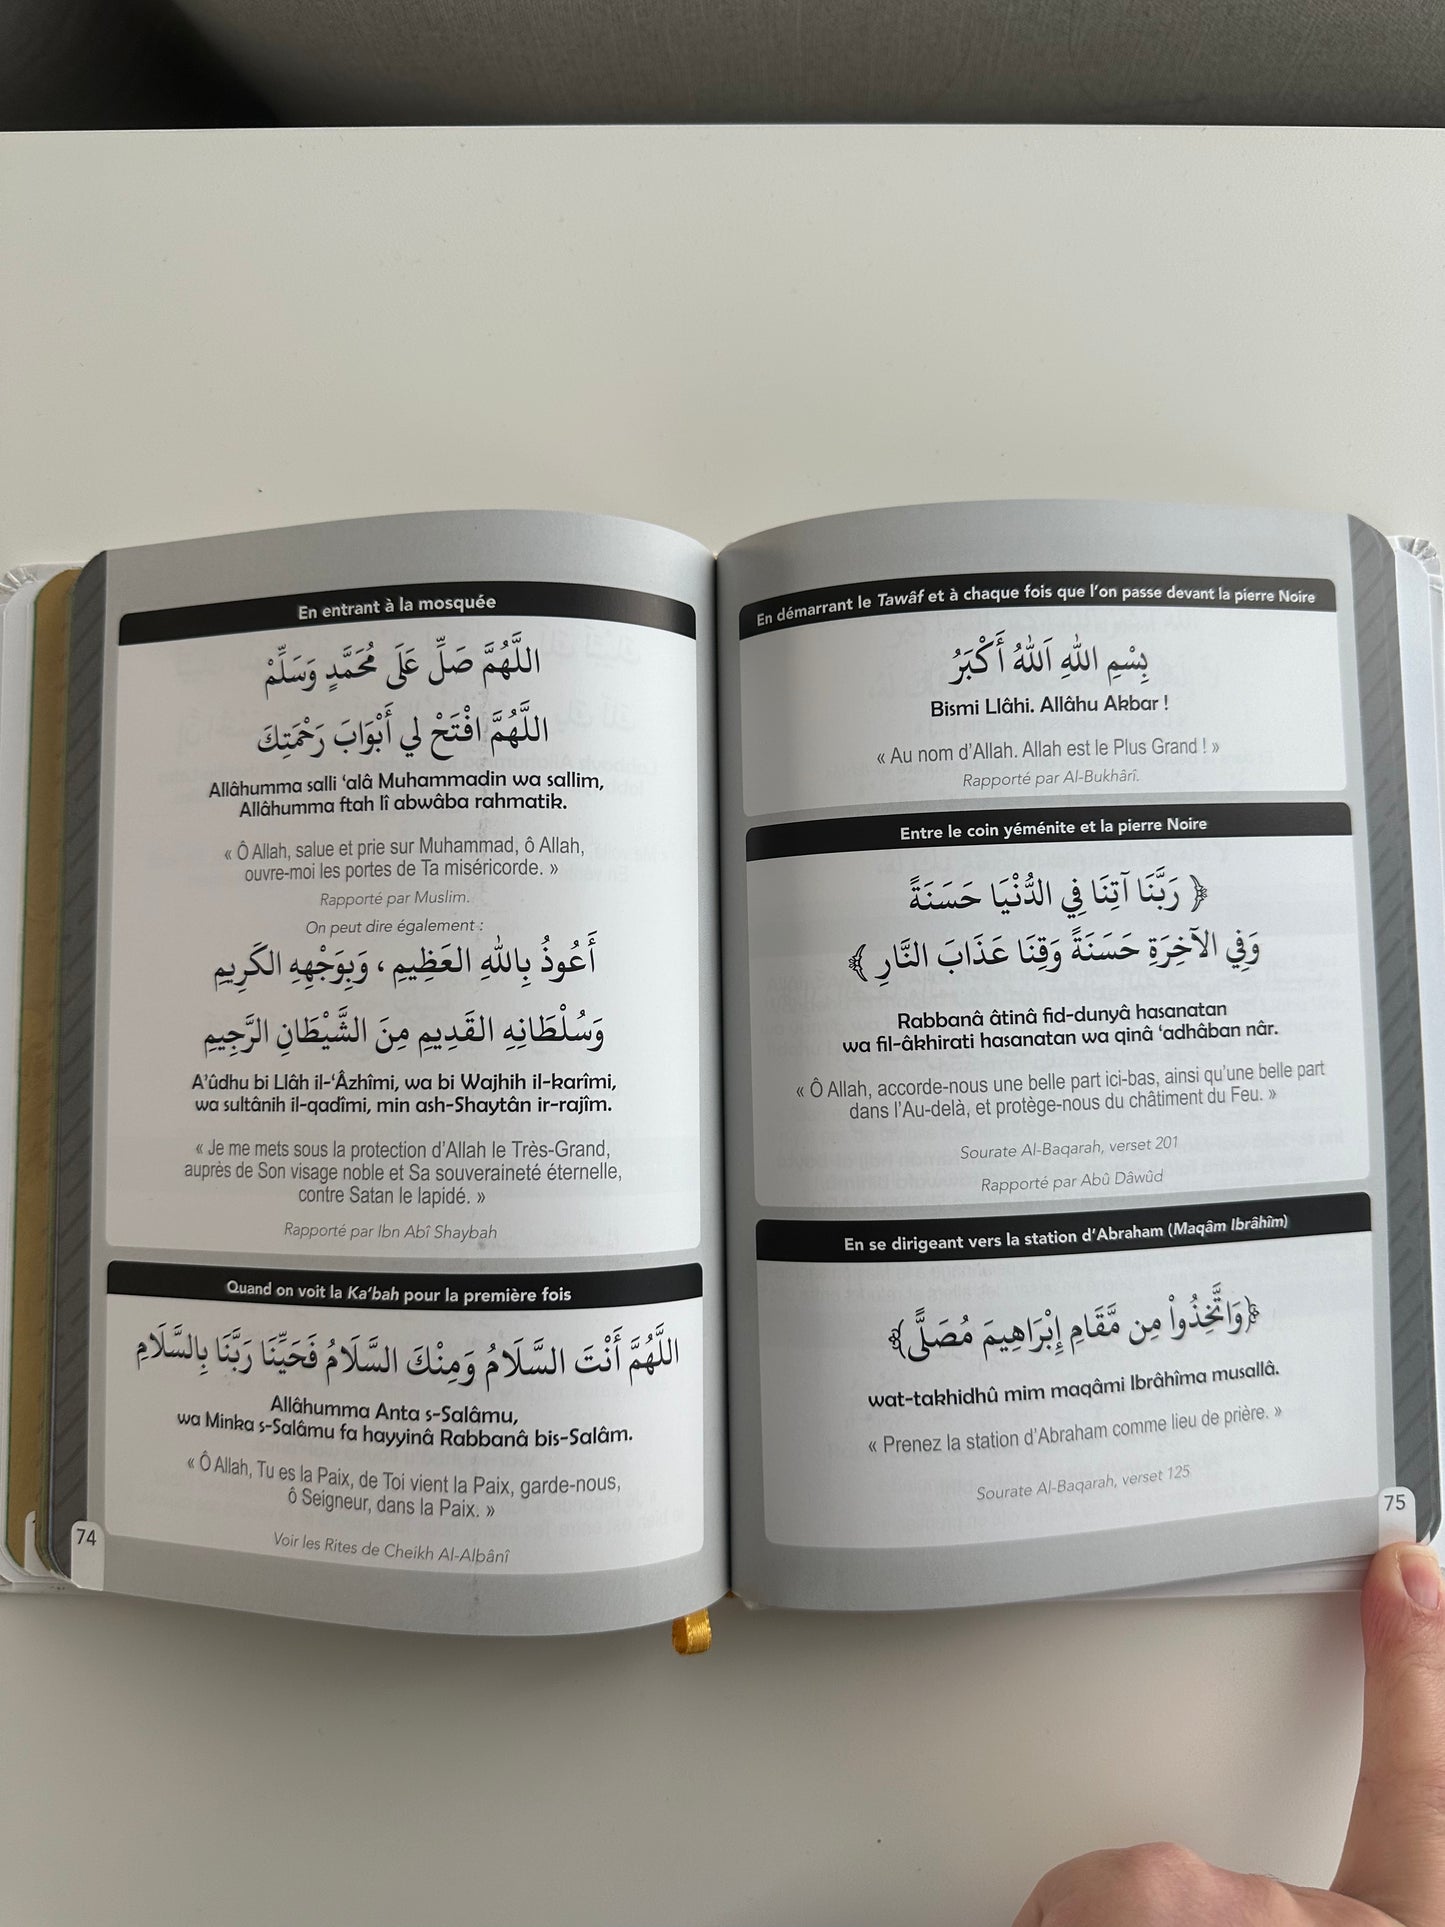 En entrant à la mosquée
اللَّهُمَّ صَلِّ عَلَى مُحَمَّدٍ وَسَلِّمْ
اللَّهُمَّ افْتَحْ لِي أَبْوَابَ رَحْمَتِكَ
Allâhumma salli ‘alâ Muhammadin wa sallim,
Allâhumma ftah lî abwâba rahmatik.
« Ô Allah, salue et prie sur Muhammad, ô Allah,
ouvre-moi les portes de Ta miséricorde. »
Rapporté par Muslim.
On peut dire également :
أَعُوذُ بِاللهِ العَظِيمِ ، وَبِوَجْهِهِ الكَرِيمِ
وَسُلْطَانِهِ القَدِيمِ مِنَ الشَّيْطَانِ الرَّجِيمِ
A’ûdhu bi Llâh il-‘Âzhîmi, wa bi Wajhih il-karîmi,
wa sultânih il-qadîmi, min ash-Shaytân ir-rajîm.
« Je me mets sous la protection d’Allah le Très-Grand,
auprès de Son visage noble et Sa souveraineté éternelle,
contre Satan le lapidé. »
Rapporté par Ibn Abî Shaybah
Quand on voit la Ka’bah pour la première fois
اللَّهُمَّ أَنْتَ السَّلَامُ وَمِنْكَ السَّلَامُ فَحَيِّنَا رَبَّنَا بِالسَّلَامِ
Allâhumma Anta s-Salâmu,
wa Minka s-Salâmu fa hayyinâ Rabbanâ bis-Salâm.
« Ô Allah, Tu es la Paix, de Toi vient la Paix, garde-nous,
ô Seigneur, dans la Paix. »
Voir les Rites de Cheikh Al-Albânî
74
En démarrant le Tawâf et à chaque fois que l’on passe devant la pierre Noire
بِسْمِ اللهِ اَللهُ أَكْبَرُ
Bismi Llâhi. Allâhu Akbar !
« Au nom d’Allah. Allah est le Plus Grand ! »
Rapporté par Al-Bukhârî.
Entre le coin yéménite et la pierre Noire
﴿ رَبَّنَا آتِنَا فِي الدُّنْيَا حَسَنَةً
وَفِي الآخِرَةِ حَسَنَةً وَقِنَا عَذَابَ النَّارِ ﴾
Rabbanâ âtinâ fid-dunyâ hasanatan
wa fil-âkhirati hasanatan wa qinâ ‘adhâban nâr.
« Ô Allah, accorde-nous une belle part ici-bas, ainsi qu’une belle part
dans l’Au-delà, et protège-nous du châtiment du Feu. »
Sourate Al-Baqarah, verset 201
Rapporté par Abû Dâwûd
En se dirigeant vers la station d’Abraham (Maqâm Ibrâhîm)
﴿وَاتَّخِذُواْ مِن مَّقَامِ إِبْرَاهِيمَ مُصَلًّى﴾
wat-takhidhû mim maqâmi Ibrâhîma musallâ.
« Prenez la station d’Abraham comme lieu de prière. »
Sourate Al-Baqarah, verset 125
75